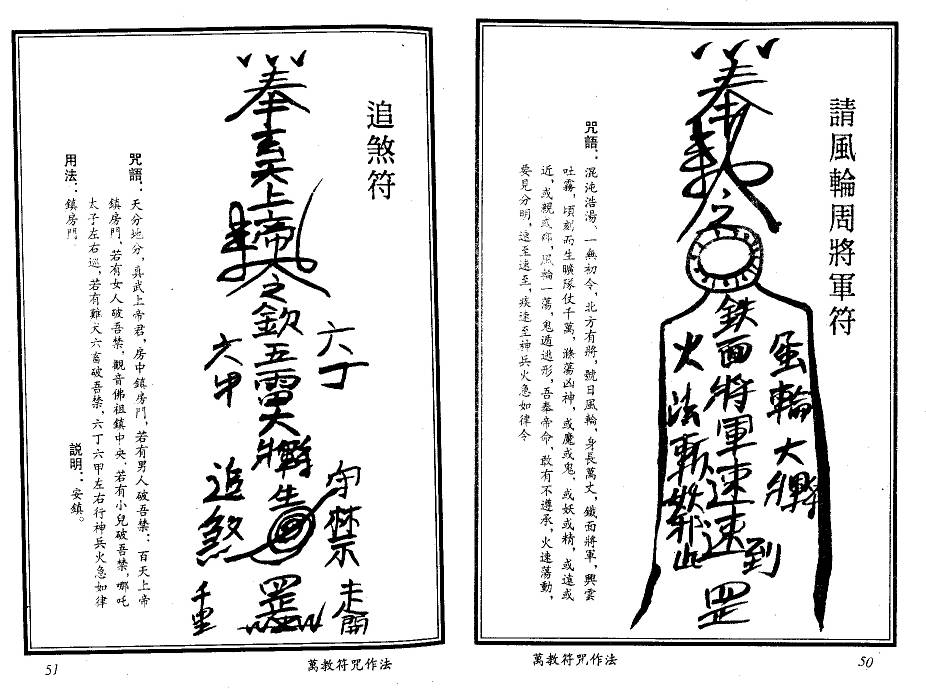 請風輪周將軍符
咒語：混沌浩湯、一無初令、北方有將、號曰風輪、身長萬丈、鐵面將軍、興雲
吐霧、頃刻而生曠隊仗千萬、滌蕩凶神、或魔或鬼、或妖或精、或遠或
近、或親或疎、風輪一蕩、鬼遁逃形、吾奉帝命、敢有不遵承、火速蕩動、
要見分明、速至速至、疾速至神兵火急如律令
奉
之
風輪大將
鉄面將軍速速到罡
火法斬妖邪
萬教符咒作法
50
追煞符
奉玄天上帝
之欽五雷大將
罡
六丁
六甲
守禁
走開
追煞
千里
咒語：天分地分，真武上帝君，房中鎮房門，若有男人破吾禁：百天上帝
鎮房門，若有女人破吾禁，觀音佛祖鎮中央，若有小兒破吾禁，哪吒
太子左右巡，若有雞犬六畜破吾禁，六丁六甲左右行神兵火急如律
用法：鎮房門
說明：安鎮。
萬教符咒作法
51